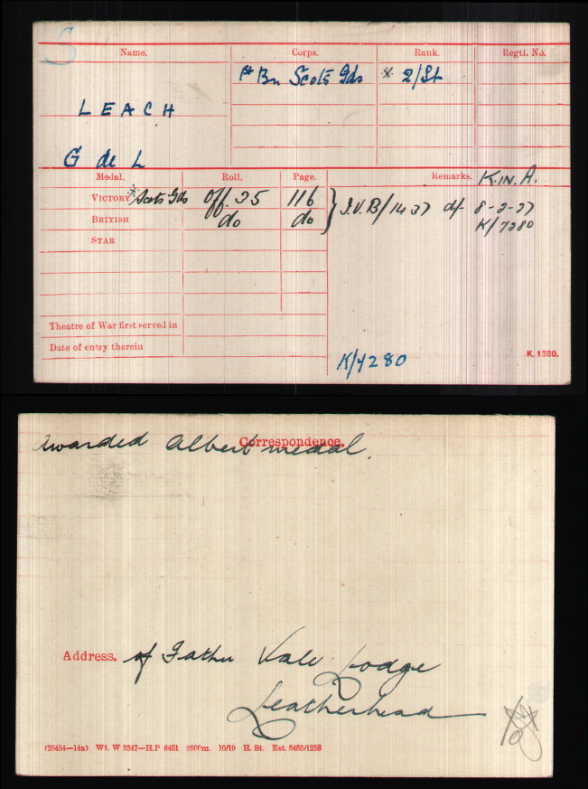 Name. Corps. Rank. Regtl. No.
LEACH 1st Bn Scots Gds * 2/Lt
G de L
Medal. Roll. Page. Remarks. K.IN.A.
VICTORY * Scots Gds Off. 25 116 } I.V.B/1437 df 8-2-27
BRITISH do do K/7280
STAR
Theatre of War first served in
Date of entry therein
K/7280
K. 1380.
Correspondence.
Awarded Albert medal.
Address. of Father Vale Lodge
Leatherhead